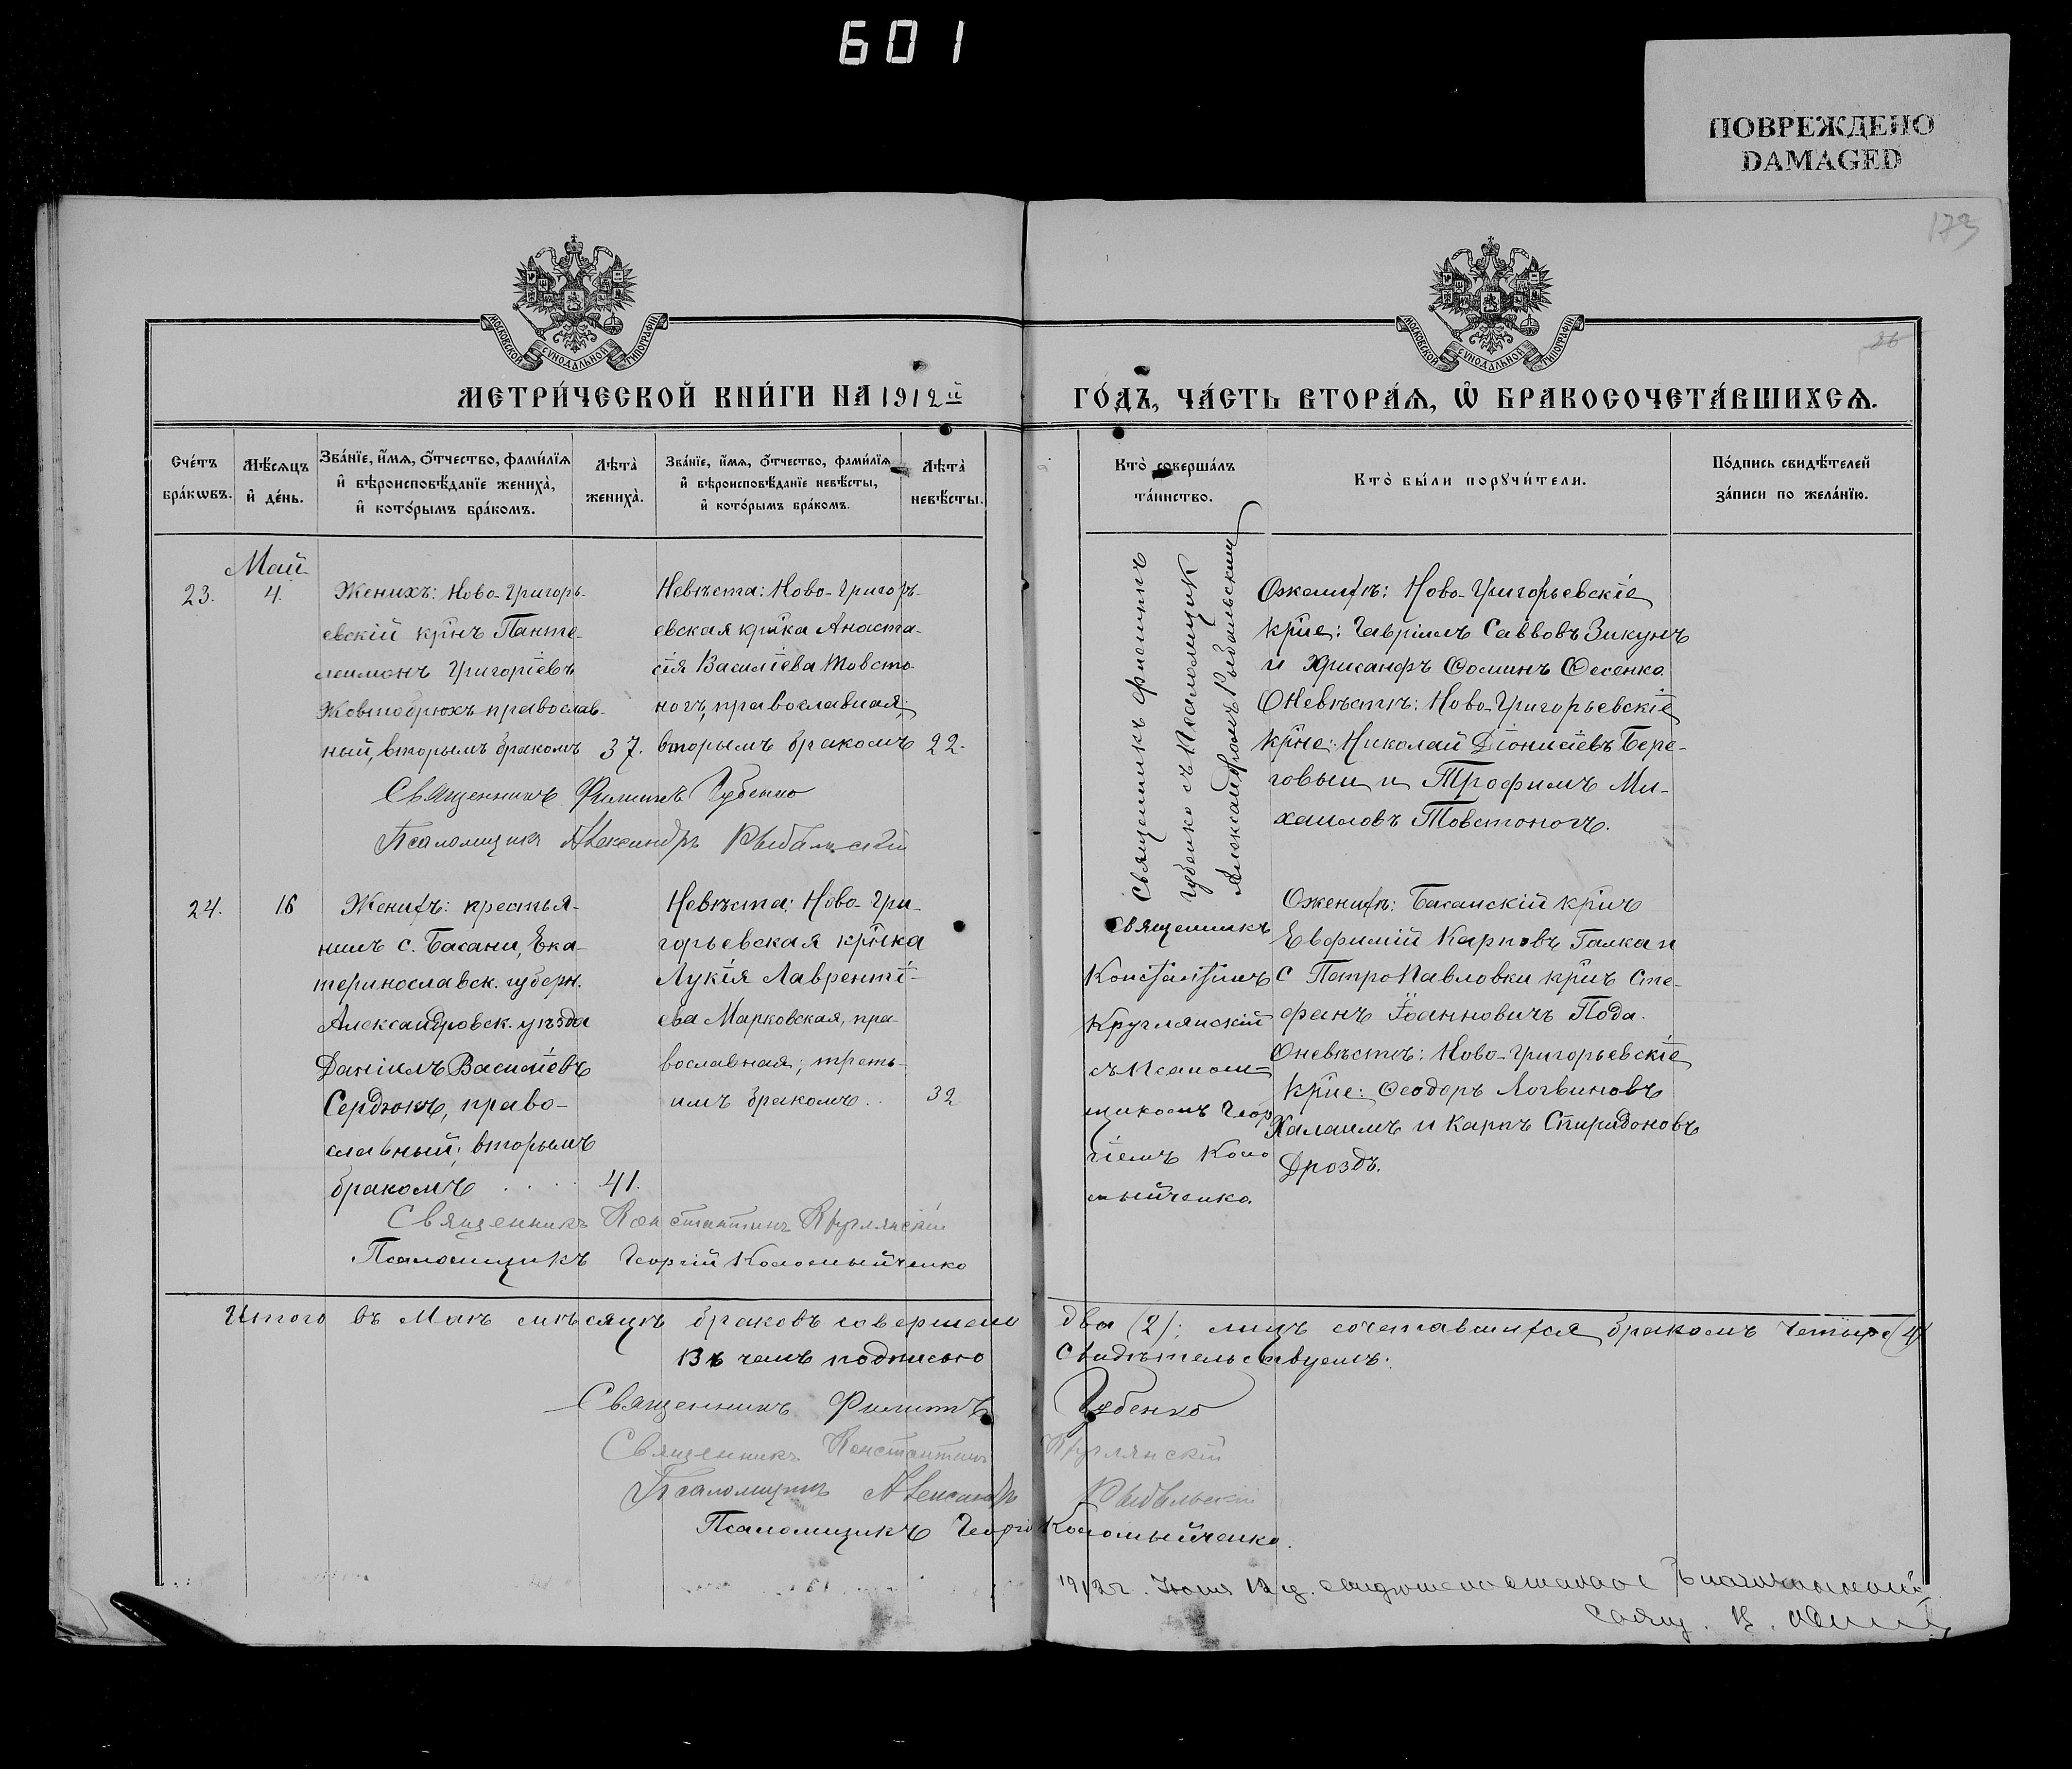 601
ПОВРЕЖДЕНО
DAMAGED
173
26
МОСКОВСКОЙ СѴНОДАЛЬНОЙ ТИПОГРАФІИ
МОСКОВСКОЙ СѴНОДАЛЬНОЙ ТИПОГРАФІИ
МЕТРИ́ЧЕСКОЙ КНИ́ГИ НА 1912й
ГО́ДЪ, ЧА́СТЬ ВТОРА́Ѧ, Ѡ҆ БРАКОСОЧЕТА́ВШИХСѦ.
Сче́тъ
бра́кѡвъ.
Мѣ́сѧцъ
и҆ де́нь.
Зва́нїе, и҆́мѧ, ѻ҆́тчество, фами́лїѧ
и҆ вѣроисповѣ́данїе жениха̀,
и҆ кото́рымъ бра́комъ.
Лѣта̀
жениха̀.
Зва́нїе, и҆́мѧ, ѻ҆́тчество, фами́лїѧ
и҆ вѣроисповѣ́данїе невѣ́сты,
и҆ кото́рымъ бра́комъ.
Лѣта̀
невѣ́сты.
Кто̀ соверша́лъ
та́инство.
Кто̀ бы́ли порꙋчи́тели.
По́дпись свидѣ́телей
за́писи по жела́нїю.
Май
23.
4.
Женихъ: Ново-Григорь-
евскій крнъ Панте-
леимонъ Григоріевъ
Жовтобрюхъ православ-
ный, вторымъ бракомъ 37.
Невѣста: Ново-Григорь-
евская крнка Анаста-
сія Василіева Товсто-
ногъ, православная;
вторымъ бракомъ 22.
Священникъ Филиппъ
Губенко съ Псаломщик
Александромъ Рыбальскимъ
О женихѣ: Ново-Григорьевскіе
крне: Гавріилъ Саввовъ Зикунъ
и Хрисанфъ Ѳоминъ Ѳесенко.
О Невѣстѣ: Ново-Григорьевскіе
крне: Николай Діонисіевъ Бере-
говый и Трофимъ Ми-
хаиловъ Товстоногъ.
Священникъ Филиппъ Губенко
Псаломщикъ Александръ Рыбальскій
24.
16
Женихъ: крестья-
нинъ с. Басани, Ека-
теринославск. губерн.
Александровск. уѣзда
Даніилъ Василіевъ
Сердюкъ, право-
славный; вторымъ
бракомъ . . . . 41.
Невѣста: Ново-Гри-
горьевская крнка
Лукія Лавренті-
ева Марковская, пра-
вославная; треть-
имъ бракомъ . . 32
Священникъ
Константинъ
Круглянскій
съ Псалом-
щикомъ Геор
гіемъ Коло
мыйченко.
О женихѣ: Басанскій крнъ
Евфимій Карповъ Галка и
с ПетроПавловки крнъ Сте-
фанъ Іоанновичъ Пода.
О невѣстѣ: Ново-Григорьевскіе
крне: Ѳеодоръ Логвиновъ
Халаимъ и Карпъ Спиридоновъ
Дроздъ.
Священникъ Константинъ Круглянскій
Псаломщикъ Георгій Коломыйченко
Итого въ Маѣ мѣсяцѣ браковъ совершено два (2); лицъ сочетавшихся бракомъ четыре (4)
Въ чемъ подписью свидѣтельствуемъ:
Священникъ Филиппъ Губенко
Священникъ Константинъ Круглянскій
Псаломщикъ Александръ Рыбальскій
Псаломщикъ Георгій Коломыйченко.
1912 г. Іюня 12 д.